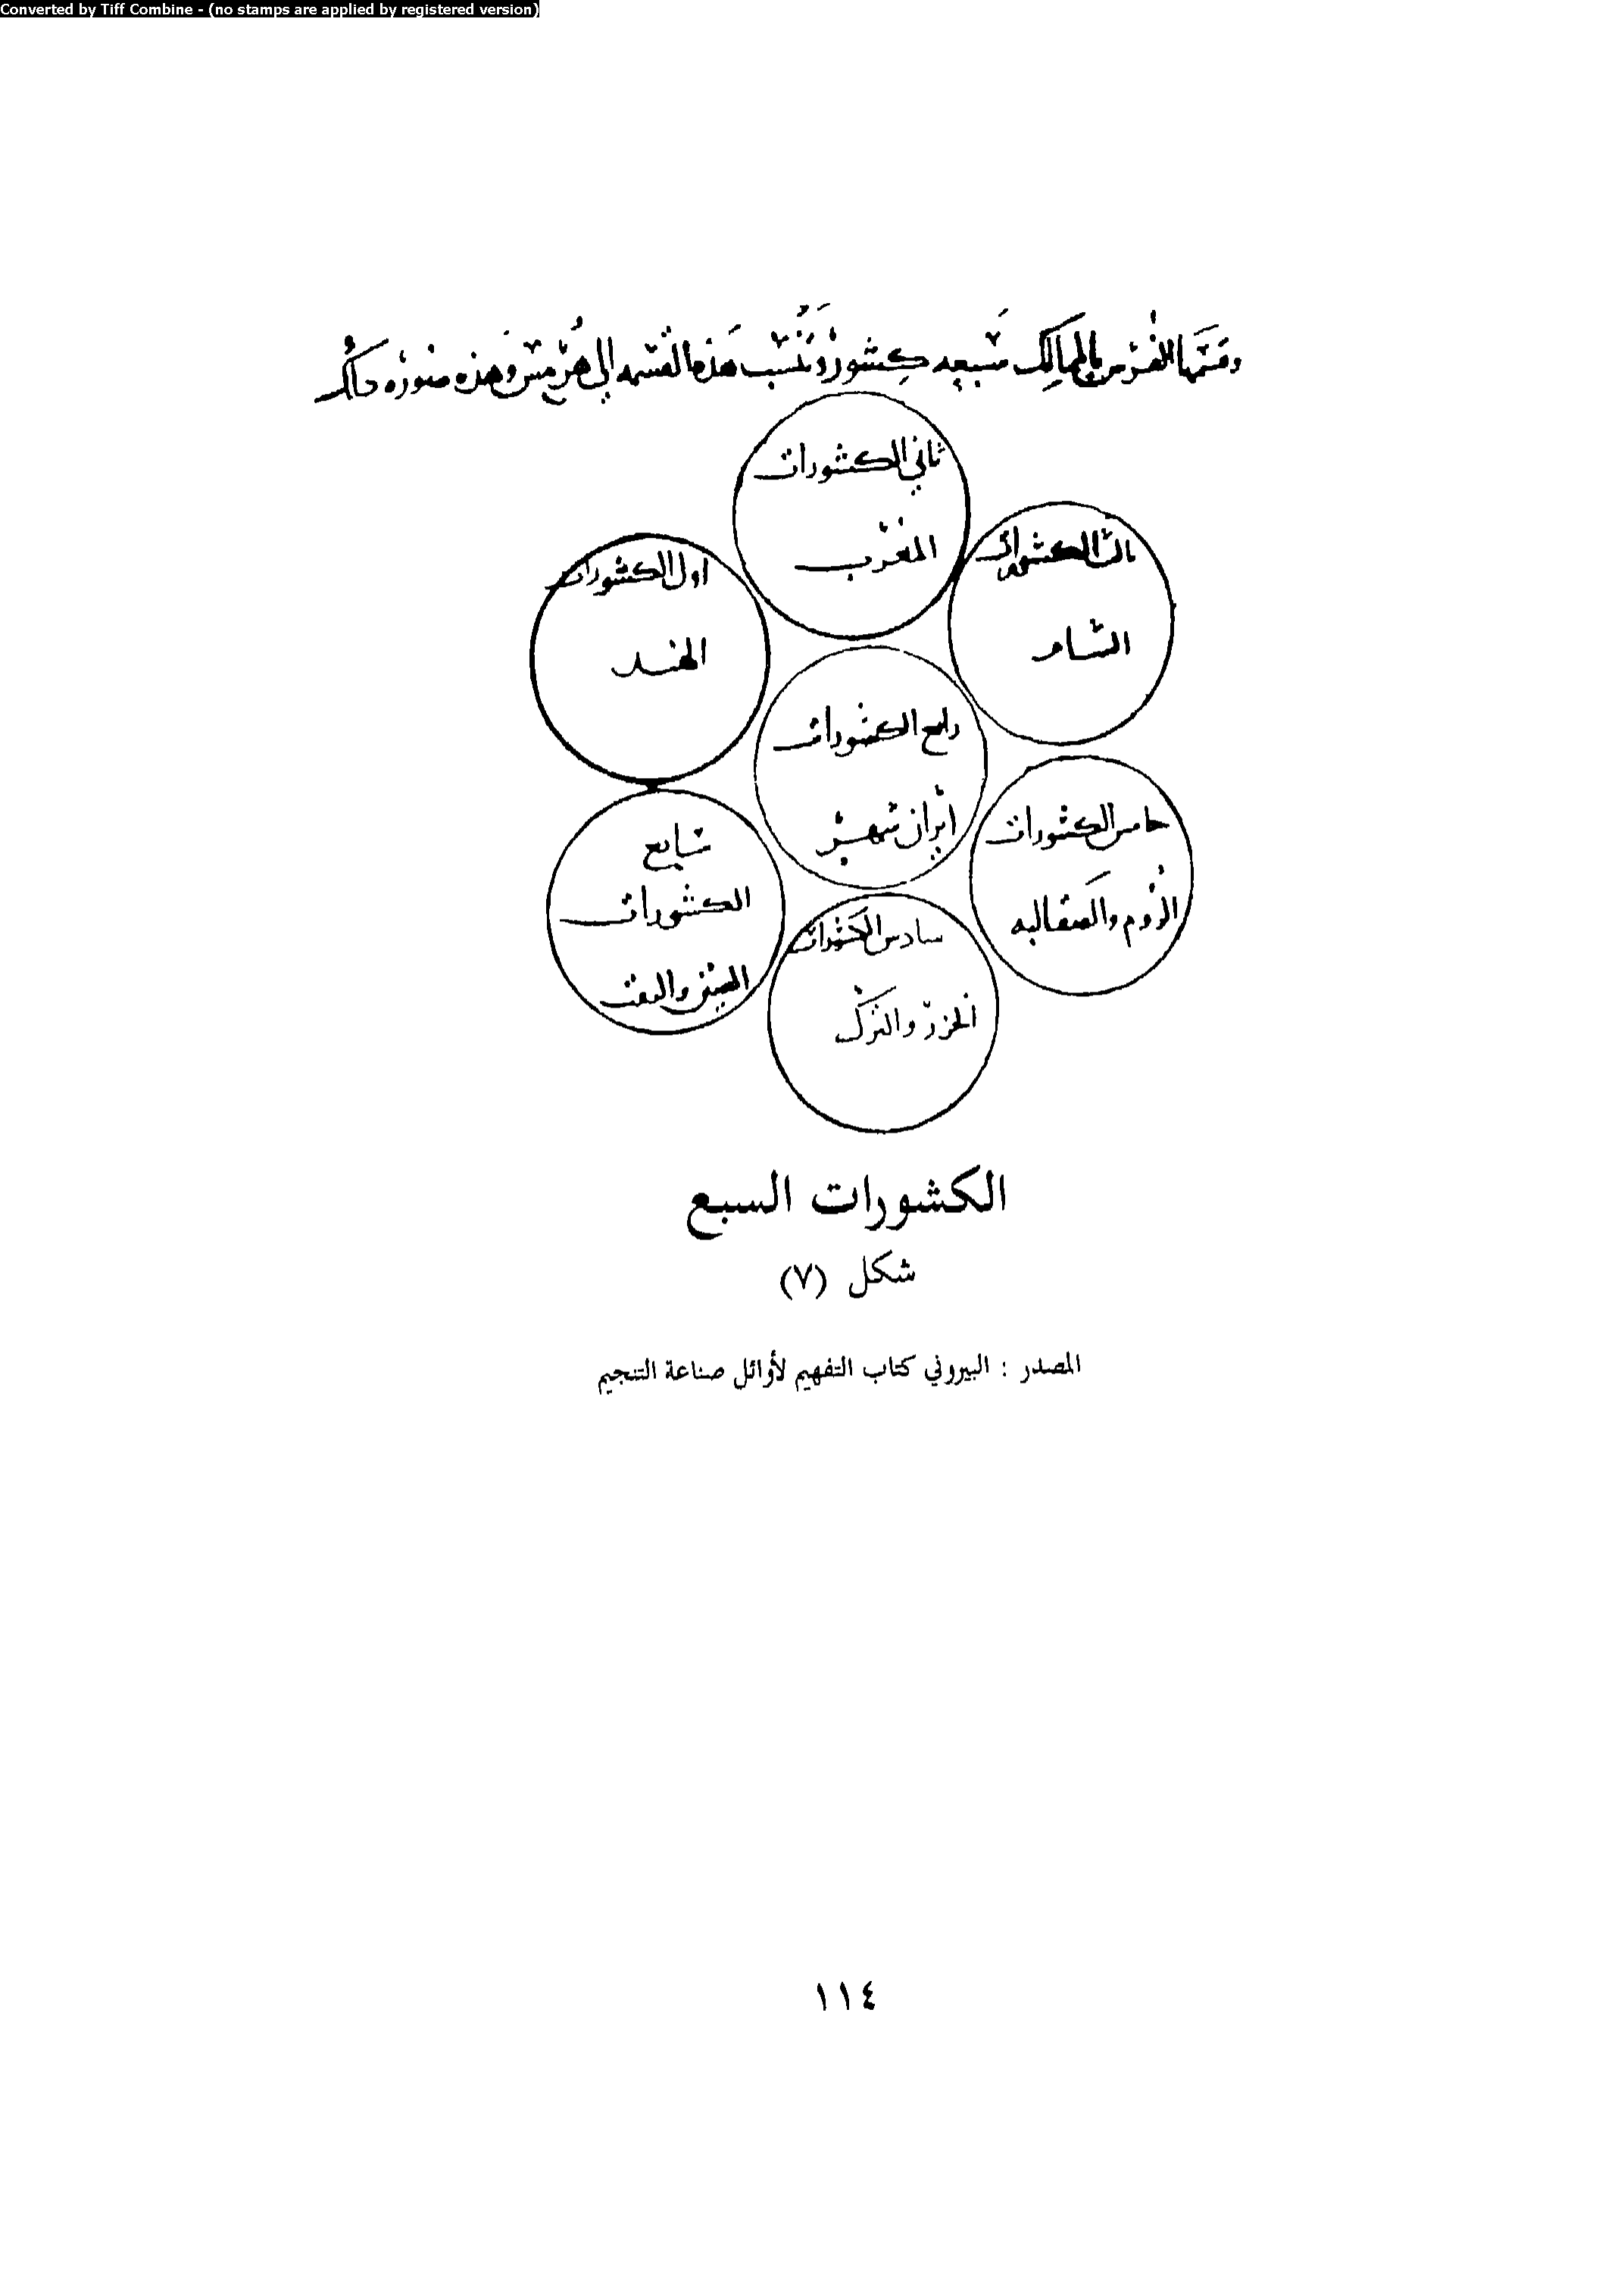 Converted by Tiff Combine - (no stamps are applied by registered version)
وقسمها الفرس بالممالك سبعه كشور وتنسب هذه القسمه الي هرمس وهذه صوره ذلك
ثاني الكشورات
المغرب
ثالث الكشورات
الشام
اول الكشورات
الهند
رابع الكشورات
ايران شهر
خامس الكشورات
الروم والصقالبه
سابع
الكشورات
الصين والتبت
سادس الكشورات
الخزر والترك
الكشورات السبع
شكل (٧)
المصدر : البيروني كتاب التفهيم لأوائل صناعة التنجيم
١١٤